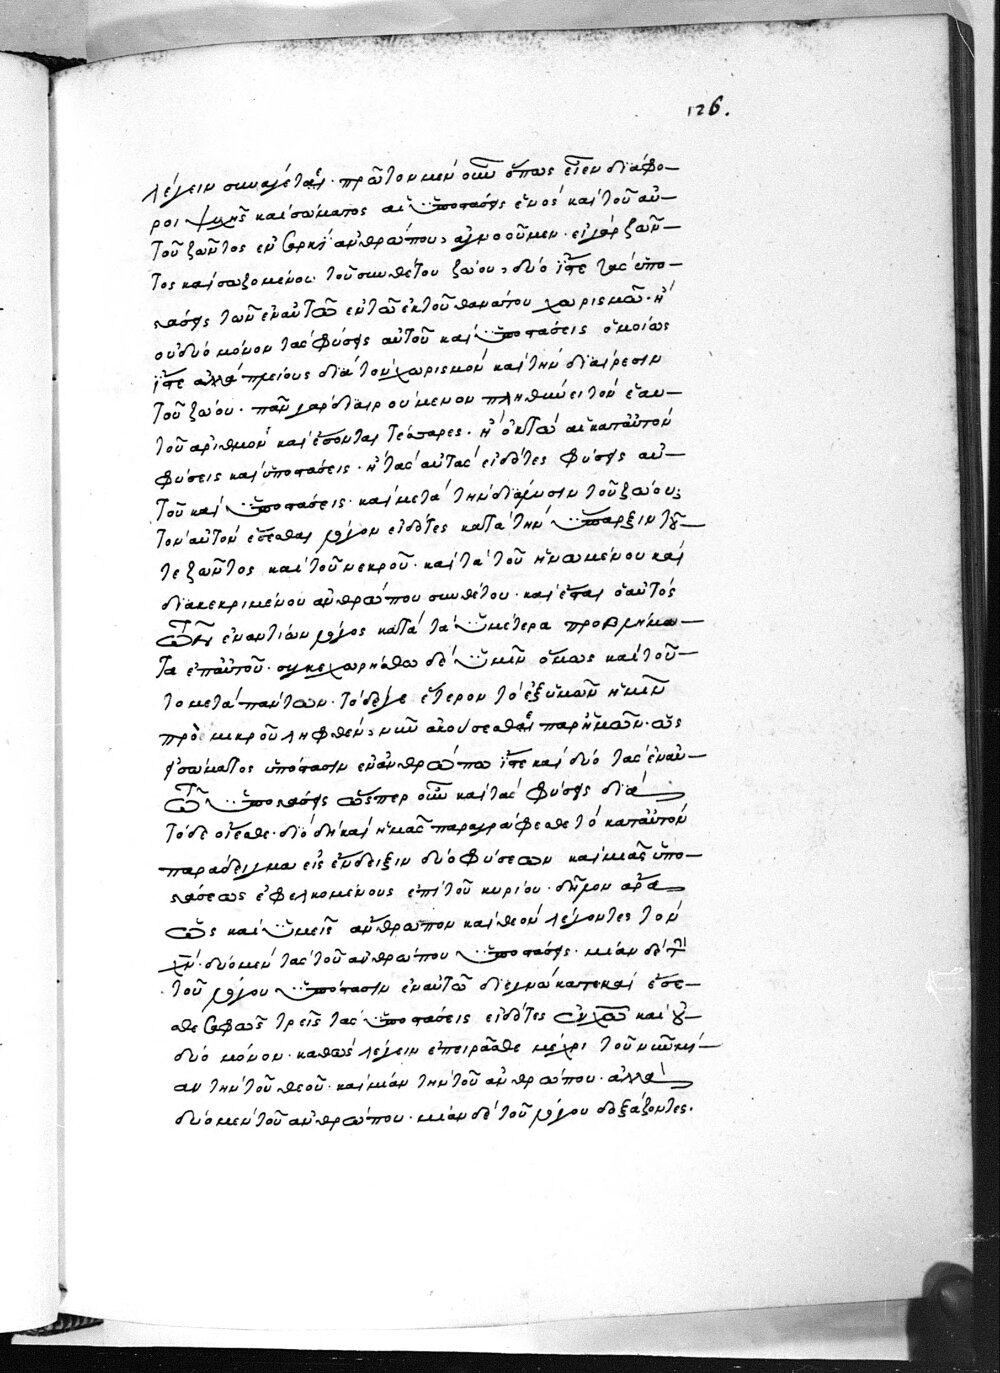 126.
λέγειν συνάγεται. πρῶτον μὲν οὖν ὅπως εἶεν διάφο-
ροι ψυχῆς καὶ σώματος αἱ ὑποστάσεις ἑνὸς καὶ τοῦ αὐ-
τοῦ ζῶντος ἐν σαρκὶ ἀνθρώπου, ἀγνοοῦμεν. εἰ γὰρ ζῶν-
τος καὶ σωζομένου τοῦ συνθέτου ζώου, δύο ἴστε τὰς ὑπο-
στάσεις τῶν ἐν αὐτῶ ἐν τῶ ἐκ τοῦ θανάτου χωρισμῶ. ἢ
οὐ δύο μόνον τὰς φύσεις αὐτοῦ καὶ ὑποστάσεις ὁμοίως
ἴστε ἀλλὰ πλείους διὰ τὸν χωρισμὸν καὶ τὴν διαίρεσιν
τοῦ ζώου. πᾶν γὰρ διαιρούμενον πληθύνει τὸν ἑαυ-
τοῦ ἀριθμὸν καὶ ἔσονται τέσσαρες. ἢ ὀκτὼ αἱ κατ' αὐτὸν
φύσεις καὶ ὑποστάσεις. ἢ τὰς αὐτὰς εἰδότες φύσεις αὐ-
τοῦ καὶ ὑποστάσεις. καὶ μετὰ τὴν διάλυσιν τοῦ ζώου,
τὸν αὐτὸν ἔσεσθαι λόγον εἰδότες κατὰ τὴν ὕπαρξιν τοῦ
τε ζῶντος καὶ τοῦ νεκροῦ. καὶ τὰ τοῦ ἡνωμένου καὶ
διακεκριμένου ἀνθρώπου συνθέτου. καὶ ἔσται ὁ αὐτὸς
τῶν ἐναντίων λόγος κατὰ τὰ ὑμέτερα προβλήμα-
τα ἐπ' αὐτοῦ. συγκεχωρήσθω δὲ ὑμῖν ὅμως καὶ τοῦ-
το μετὰ πάντων. τὸ δέ γε ἕτερον τὸ ἐξ ὑμῶν ἡμῖν
πρὸ μικροῦ ληφθέν, νῦν ἀκούσεσθαι παρ' ἡμῶν. ὡς
σώματος ὑπόστασιν ἐν ἀνθρώπω ἴστε καὶ δύο τὰς ἐν αὐ-
τῶ ὑποστάσεις ὥσπερ οὖν καὶ τὰς φύσεις διὰ
τόδε οἴεσθε. διὸ δὴ καὶ ἡμᾶς παραγράφεσθε τὸ κατ' αὐτὸν
παράδειγμα εἰς ἔνδειξιν δύο φύσεων καὶ μιᾶς ὑπο-
στάσεως ἐφελκομένους ἐπὶ τοῦ κυρίου. δῆλον ἄρα
ὡς καὶ ὑμεῖς ἄνθρωπον καὶ θεὸν λέγοντες τὸν
χν. δύο μὲν τὰς τοῦ ἀνθρώπου ὑποστάσεις. μίαν δὲ τὴν
τοῦ λόγου ὑπόστασιν ἐν αὐτῶ διεγνώκατε καὶ ἔσε-
σθε σαφῶς τρεῖς τὰς ὑποστάσεις εἰδότες ἐν χω καὶ οὐ
δύο μόνον. καθὼς λέγειν ἐπειρᾶσθε μέχρι τοῦ νῦν μί-
αν τὴν τοῦ θεοῦ. καὶ μίαν τὴν τοῦ ἀνθρώπου. ἀλλὰ
δύο μὲν τοῦ ἀνθρώπου. μίαν δὲ τοῦ λόγου δοξάζοντες.